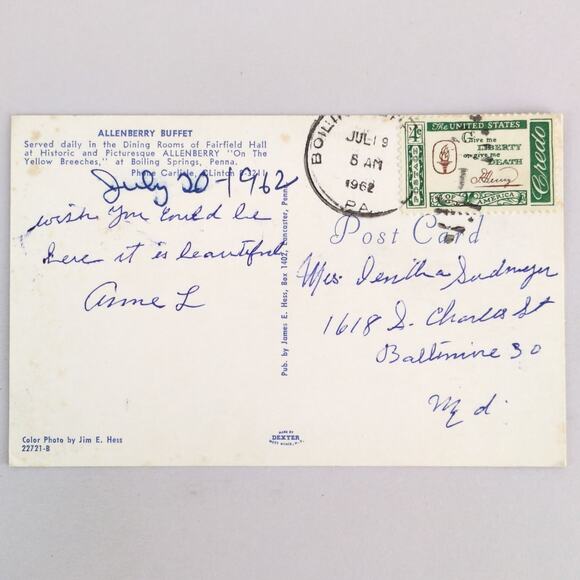 ALLENBERRY BUFFET
Served daily in the Dining Rooms of Fairfield Hall
at Historic and Picturesque ALLENBERRY "On The
Yellow Breeches," at Boiling Springs, Penna.
Phone Carlisle, CLinton 8-3211
July 20-1962
wish you could be
here it is beautiful
Anne L
Color Photo by Jim E. Hess
22721-B
Pub. by James E. Hess, Box 1402, Lancaster, Penn
MADE BY
DEXTER
WEST NYACK, N.Y.
BOILIN
JUL 19
8 AM
1962
PA.
4¢
The UNITED STATES
Give me
LIBERTY
or give me
DEATH
P. Henry
Credo
OF AMERICA
Post Card
Mrs.
1618 S. Charles St
Baltimore 30
Md.